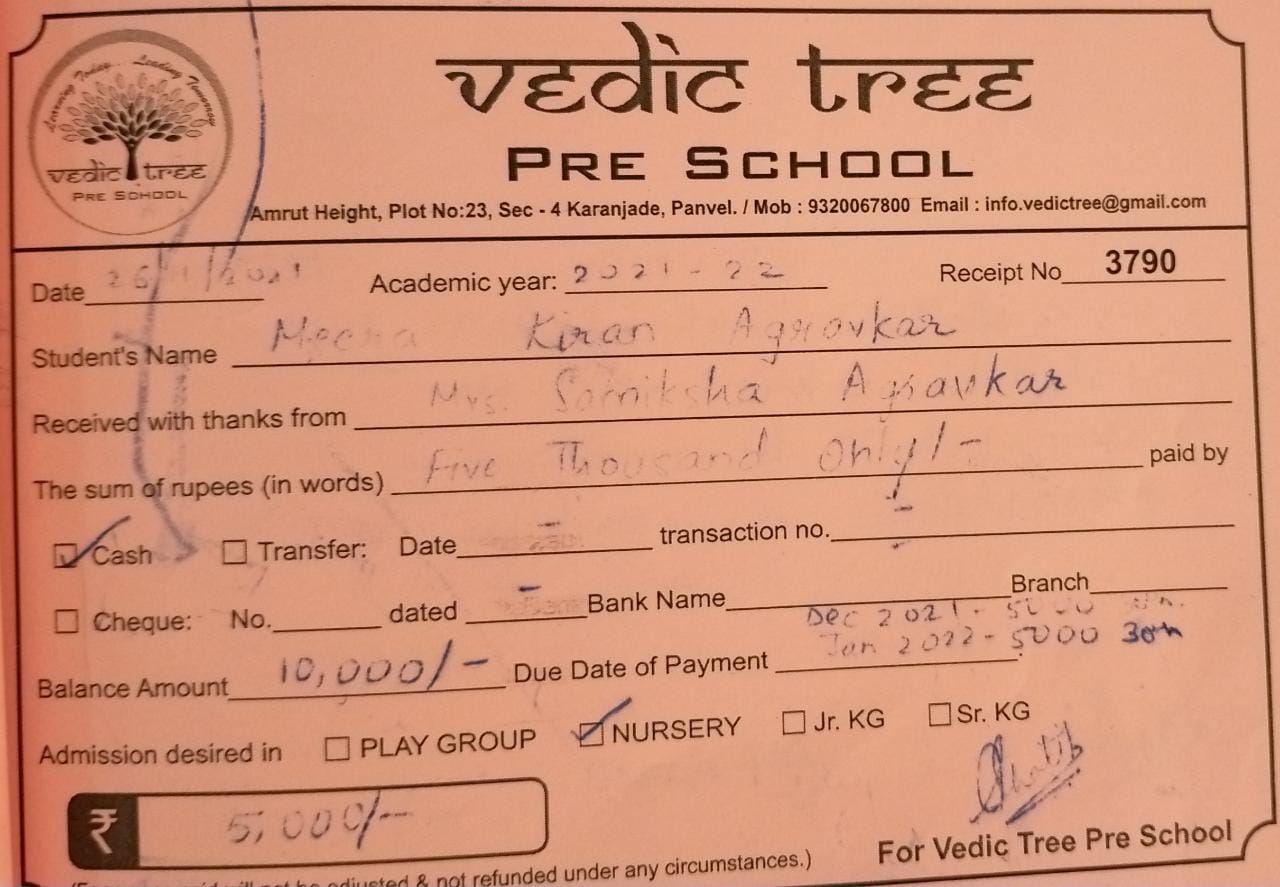 Learning Today... Leading Tomorrow
vedic tree
PRE SCHOOL
vedic tree
PRE SCHOOL
Amrut Height, Plot No:23, Sec - 4 Karanjade, Panvel. / Mob : 9320067800 Email : info.vedictree@gmail.com
Date 26/11/2021 Academic year: 2021-22 Receipt No 3790
Student's Name Meera Kiran Agravkar
Received with thanks from Mrs. Samiksha Agravkar
The sum of rupees (in words) Five Thousand Only/- paid by
Cash Transfer: Date - transaction no. -
Cheque: No. dated - Bank Name Branch
Dec 2021 - 5000
Balance Amount 10,000/- Due Date of Payment Jan 2022 - 5000 30th
Admission desired in PLAY GROUP NURSERY Jr. KG Sr. KG
₹ 5,000/-
For Vedic Tree Pre School
adjusted & not refunded under any circumstances.)